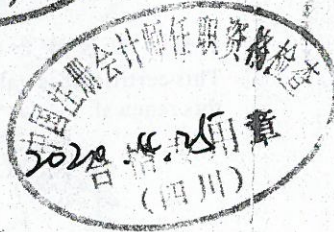 中国注册会计师任职资格检查
合格专用章
2020.4.25
(四川)